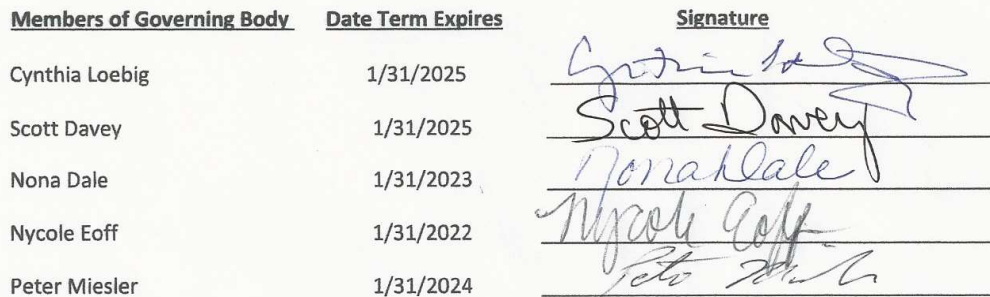 Members of Governing Body Date Term Expires Signature
Cynthia Loebig 1/31/2025
Scott Davey 1/31/2025 Scott Davey
Nona Dale 1/31/2023 Nona Dale
Nycole Eoff 1/31/2022 Nycole Eoff
Peter Miesler 1/31/2024